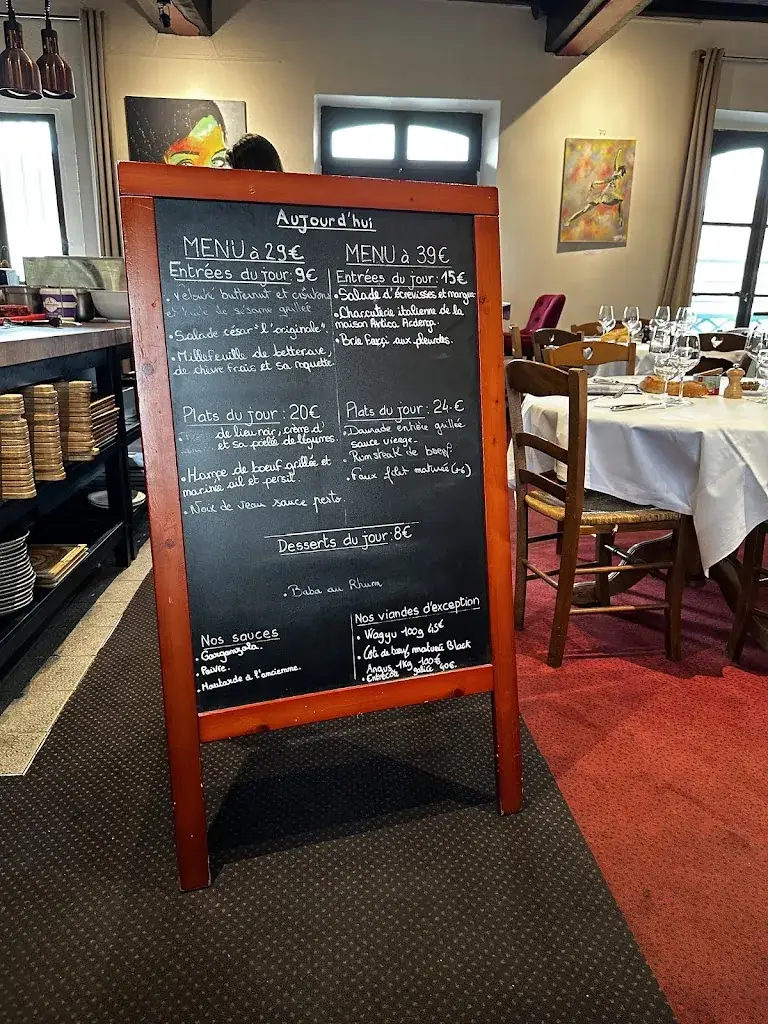 Aujourd'hui
MENU à 29€
Entrées du jour: 9€
• Velouté butternut et
et huile de sésame grillée
• Salade césar "l'originale".
• Millefeuille de betterave,
de chèvre frais et sa roquette
Plats du jour: 20€
de lieu noir, crème d'
et sa poêlée de légumes.
• Hampe de boeuf grillée et
marinée ail et persil.
• Noix de veau sauce pesto.
MENU à 39€
Entrées du jour: 15€
• Salade d'écrevisses et mangue
• Charcuterie italienne de la
maison Artica
• Brie Farçi aux pleurotes.
Plats du jour: 24€
• Daurade entière grillée
sauce vierge.
Rumsteak de boeuf
• Faux filet maturée (+6)
Desserts du jour: 8€
• Baba au Rhum
Nos sauces
• Gorgonzola.
• Poivre.
• Moutarde à l'ancienne.
Nos viandes d'exception
• Wagyu 100g 45€
• Côte de boeuf maturée Black
Angus 1kg 100€
• Entrecôte galice 40€.